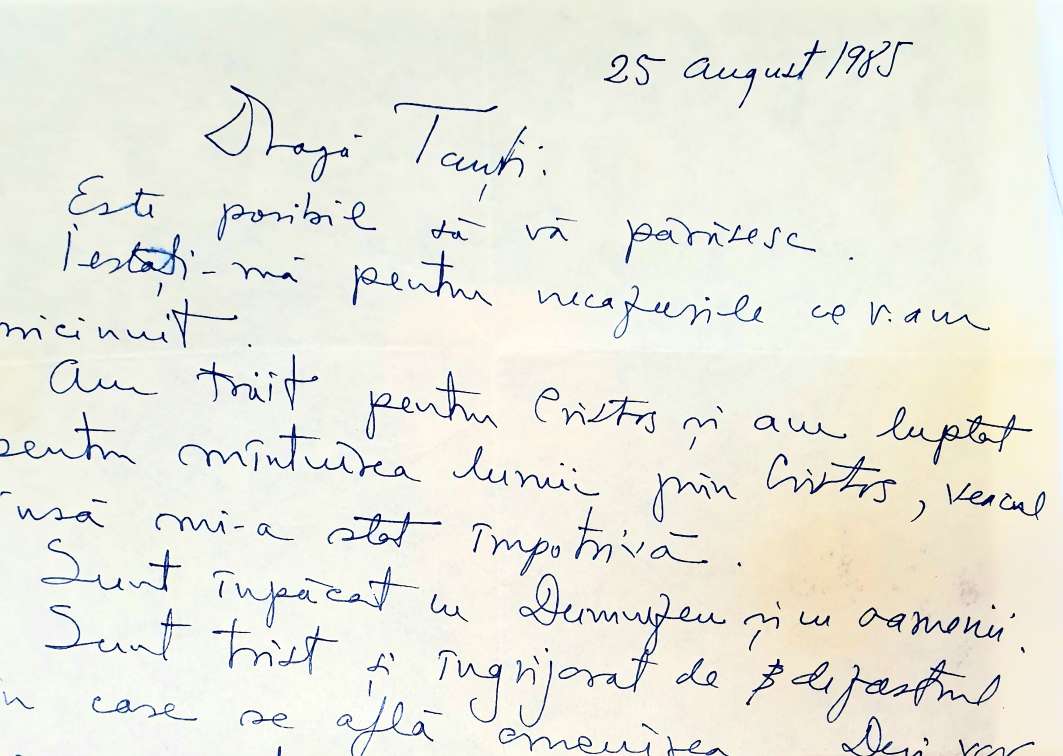 25 august 1985
Dragă Tanți:
Este posibil să vă părăsesc.
Iertați-mă pentru necazurile ce v-am
pricinuit.
Am trăit pentru Cristos și am luptat
pentru mîntuirea lumii prin Cristos, veacul
însă mi-a stat împotrivă.
Sunt înpăcat cu Dumnezeu și cu oamenii.
Sunt trist și îngrijorat de dezastrul
în care se află omenirea.